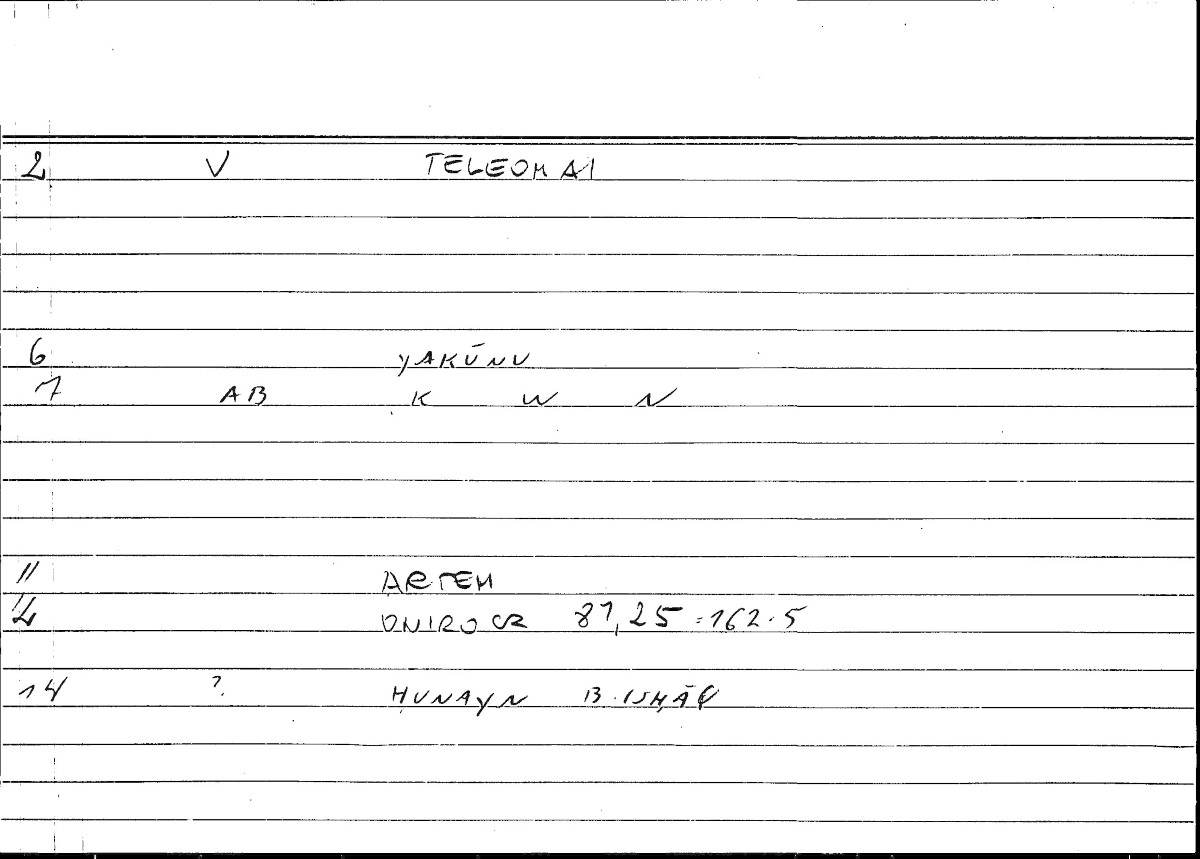 2 V TELEOMAI
6 YAKŪNU
7 AB K W N
11 ARTEM
12 ONIROCR 87,25 = 162.5
14 ? ḤUNAYN B. ISḤĀQ